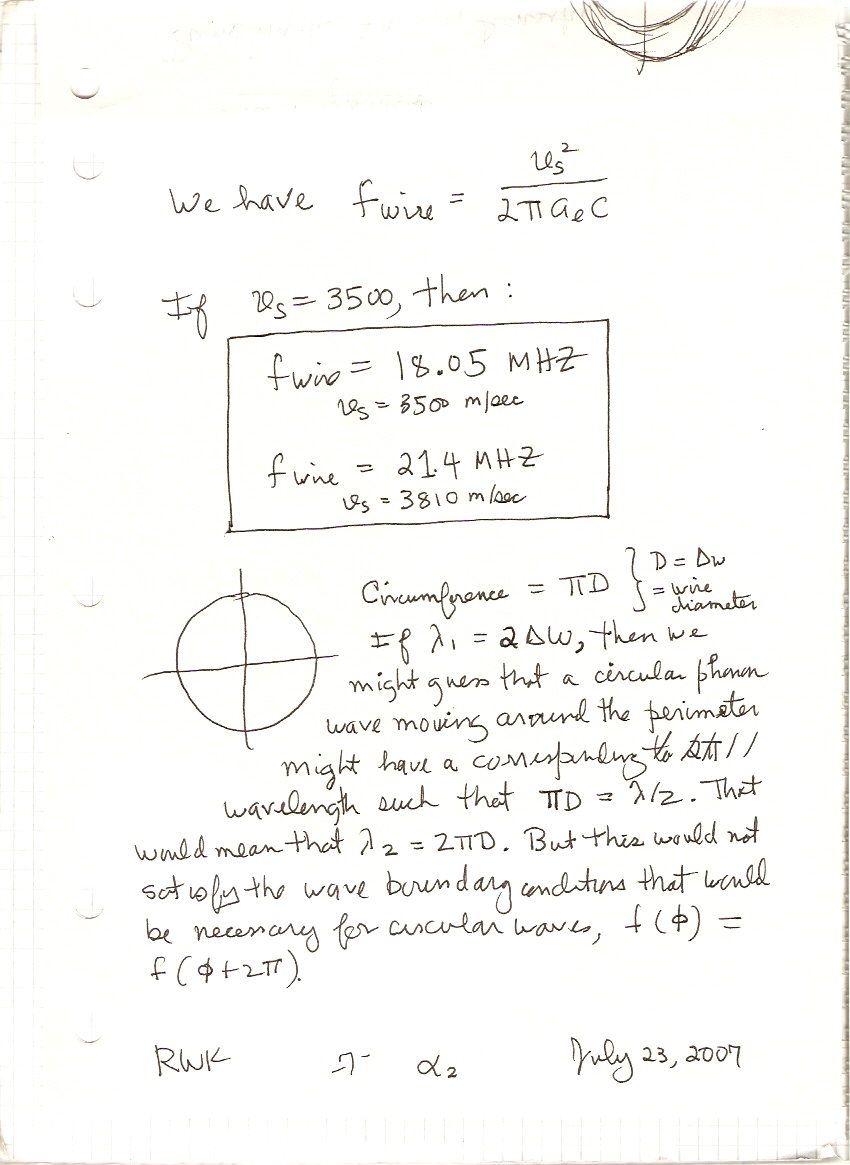 We have f wire = v_s² / 2π a_e C
If v_s = 3500, then :
f wire = 18.05 MHZ
v_s = 3500 m/sec
f wire = 21.4 MHZ
v_s = 3810 m/sec
Circumference = πD } D = Δw
= wire
diameter
If λ₁ = 2Δw, then we
might guess that a circular phonon
wave moving around the perimeter
might have a corresponding to
wavelength such that πD = λ/2. That
would mean that λ₂ = 2πD. But this would not
satisfy the wave boundary conditions that would
be necessary for circular waves, f(ϕ) =
f(ϕ+2π).
RWK -7- α₂ July 23, 2007